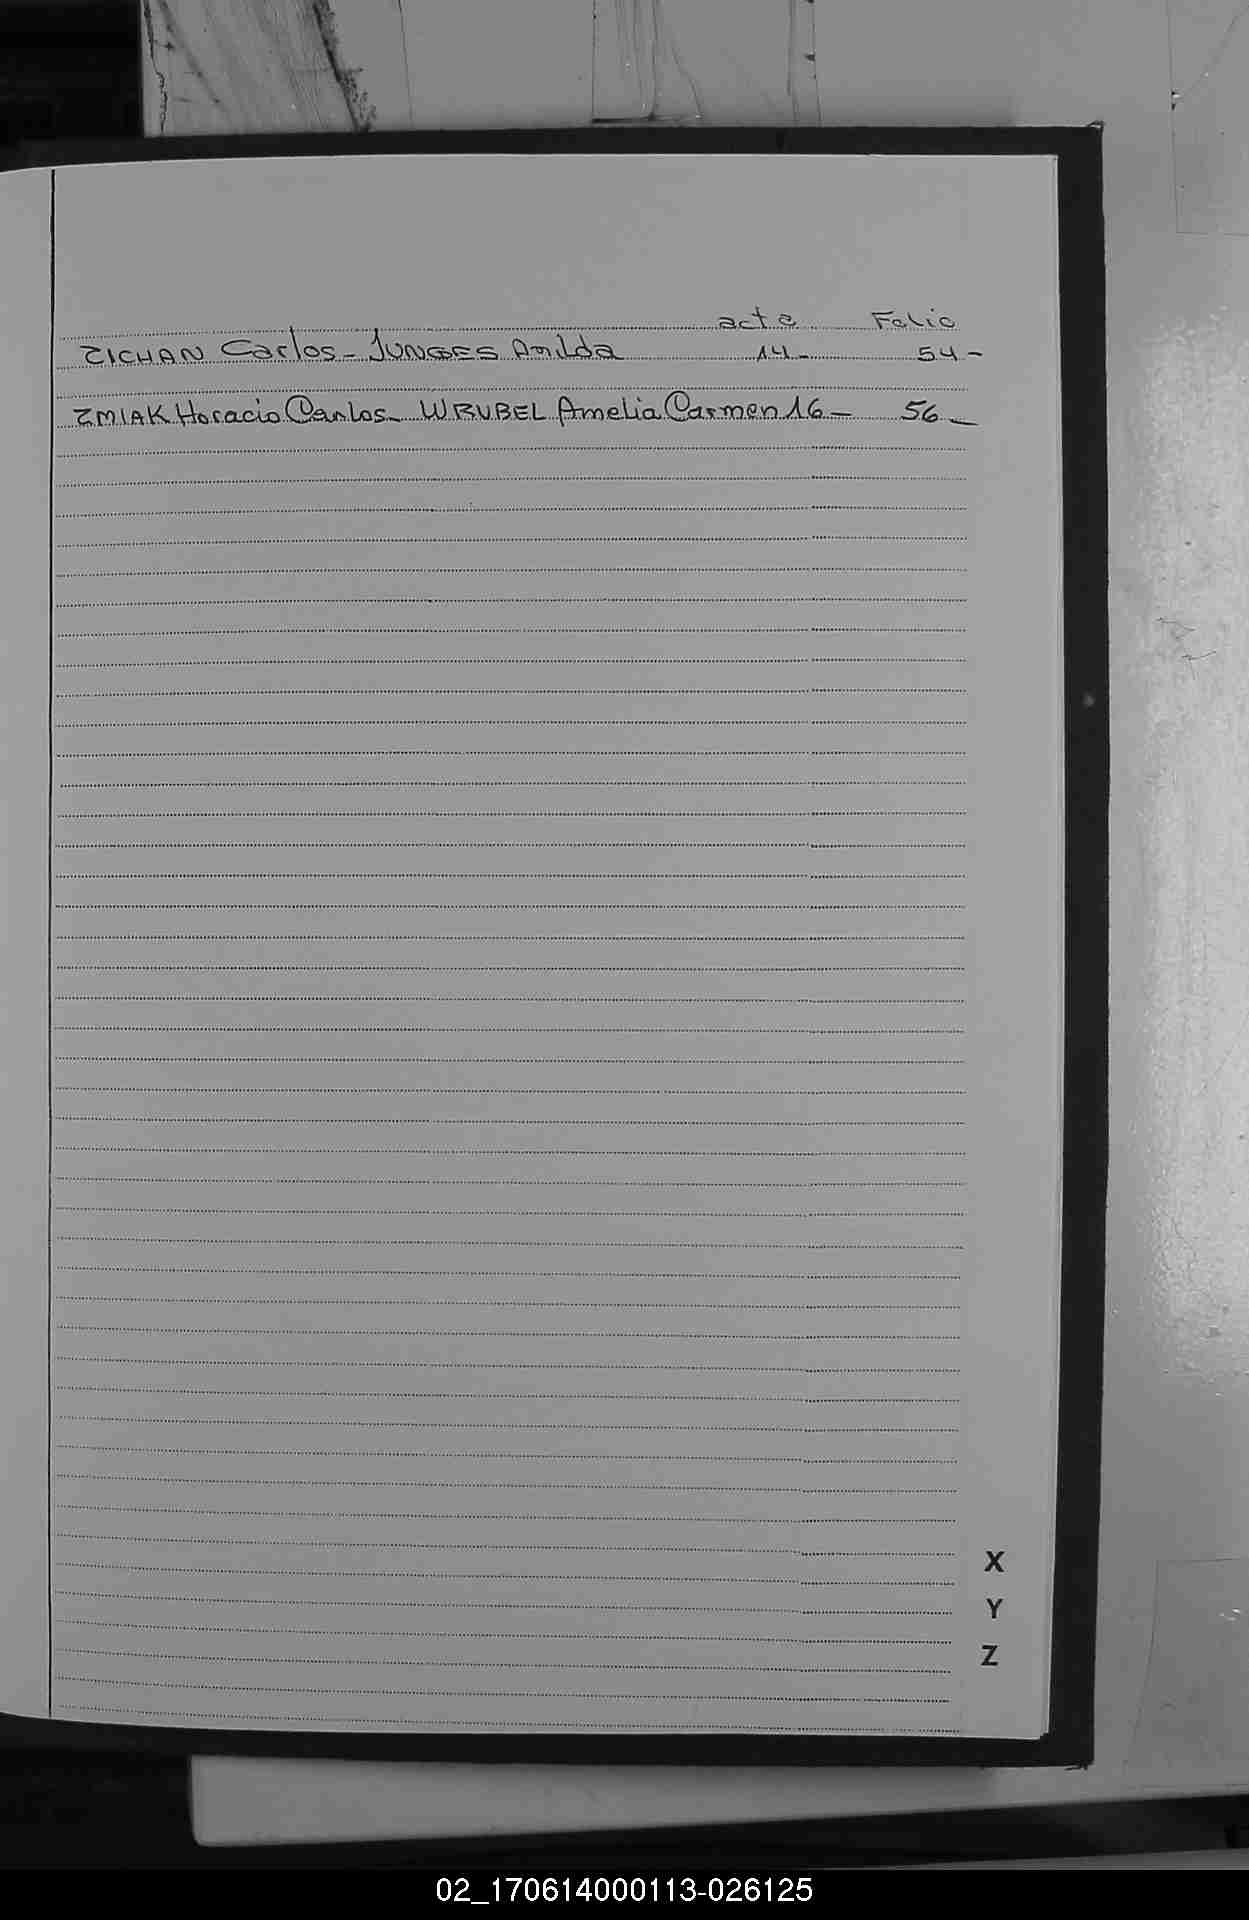 acta Folio
ZICHAN Carlos - JUNGES Anilda 14 - 54 -
ZMIAK Horacio Carlos - WRUBEL Amelia Carmen 16 - 56 -
X
Y
Z
02_170614000113-026125